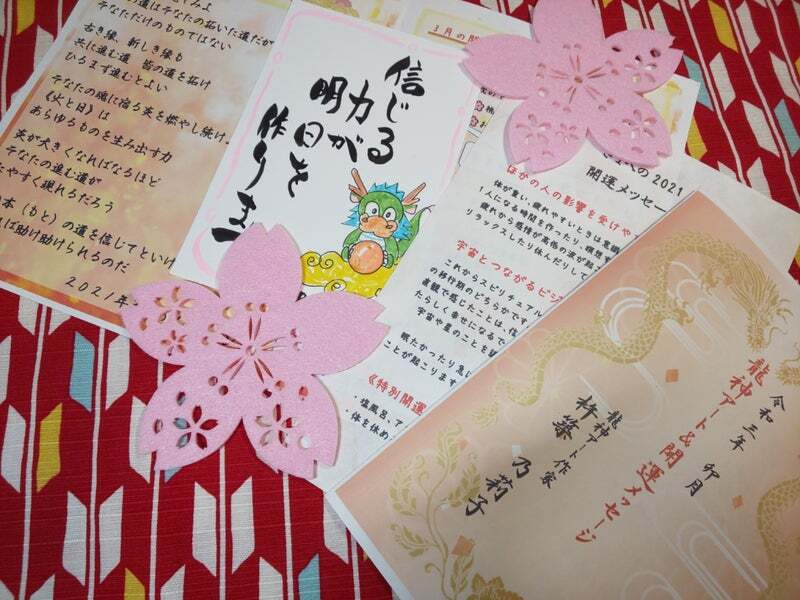 の道はそなたの拓いた道だが
そなただけのものではない
古き縁、新しき縁も
共に進む道 皆の道を拓け
ひろまず進むとよい
そなたの魂に宿る炎を燃やし続け
《火と日》は
あらゆるものを生み出す力
炎が大きくなればなるほど
そなたの進む道が
たやすく現れるだろう
本（もと）の道を信じてといけ
ば助け助けられるのだ
2021年
信じる
力が
明日を
作ります
3月の開
の2021
開運メッセー
ほかの人の影響を受けや
体が重い、疲れやすいときは意識
1人になる時間を作ったり、瞑想す
疲れから感情が高低の波が起こ
リラックスしたり休んだりして
宇宙とつながるビジ
これからスピリチュアル
の移行期のどちらかです
直観で感じたことは、信
たらしく幸せになるで
宇宙や星のことを
眠たかったり急に
ことが起こります
《特別開運
・塩風呂、ア
・体を休め
令和三年 卯月
龍神アート＆開運メッセージ
龍神アート作家
杵築 乃莉子